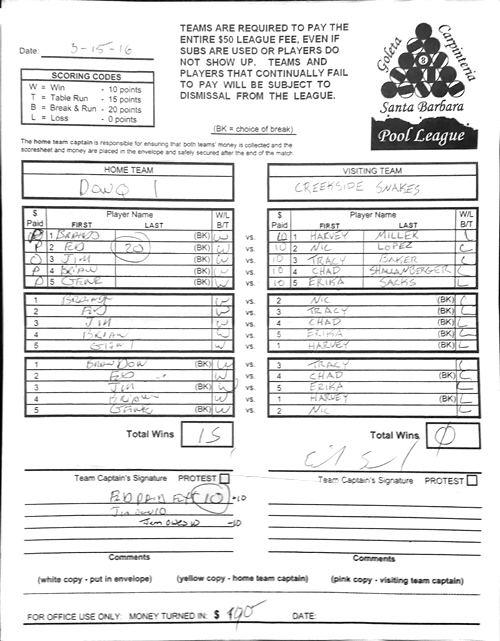 TEAMS ARE REQUIRED TO PAY THE
ENTIRE $50 LEAGUE FEE, EVEN IF
SUBS ARE USED OR PLAYERS DO
NOT SHOW UP. TEAMS AND
PLAYERS THAT CONTINUALLY FAIL
TO PAY WILL BE SUBJECT TO
DISMISSAL FROM THE LEAGUE.
(BK = choice of break)
Date: 3-15-16
SCORING CODES
W = Win - 10 points
T = Table Run - 15 points
B = Break & Run - 20 points
L = Loss - 0 points
Goleta
Carpinteria
8
Santa Barbara
Pool League
The home team captain is responsible for ensuring that both teams' money is collected and the
scoresheet and money are placed in the envelope and safely secured after the end of the match.
HOME TEAM VISITING TEAM
CREEKSIDE SNAKES
$ Paid Player Name FIRST LAST W/L B/T $ Paid Player Name FIRST LAST W/L B/T
1 (BK) W vs. 10 1 HARVEY MILLER L
P 2 ED 20 (BK) W vs. 10 2 NIC LOPEZ L
3 JIM (BK) W vs. 10 3 TRACY BAKER L
P 4 BRIAN (BK) W vs. 10 4 CHAD SHALLANBERGER L
5 GENE (BK) W vs. 10 5 ERIKA SACKS L
1 W vs. 2 NIC (BK) L
2 ED W vs. 3 TRACY (BK) L
3 JIM W vs. 4 CHAD (BK) L
4 BRIAN W vs. 5 ERIKA (BK) L
5 W vs. 1 HARVEY (BK) L
1 BRANDON (BK) W vs. 3 TRACY L
2 ED W vs. 4 CHAD (BK) L
3 JIM (BK) W vs. 5 ERIKA L
4 BRIAN W vs. 1 HARVEY (BK) L
5 GENE (BK) W vs. 2 NIC L
Total Wins 15 Total Wins 0
Team Captain's Signature PROTEST Team Captain's Signature PROTEST
ED PAID 10 -10
JIM OWES 10
-10
Comments Comments
(white copy - put in envelope) (yellow copy - home team captain) (pink copy - visiting team captain)
FOR OFFICE USE ONLY: MONEY TURNED IN: $ 490 DATE: